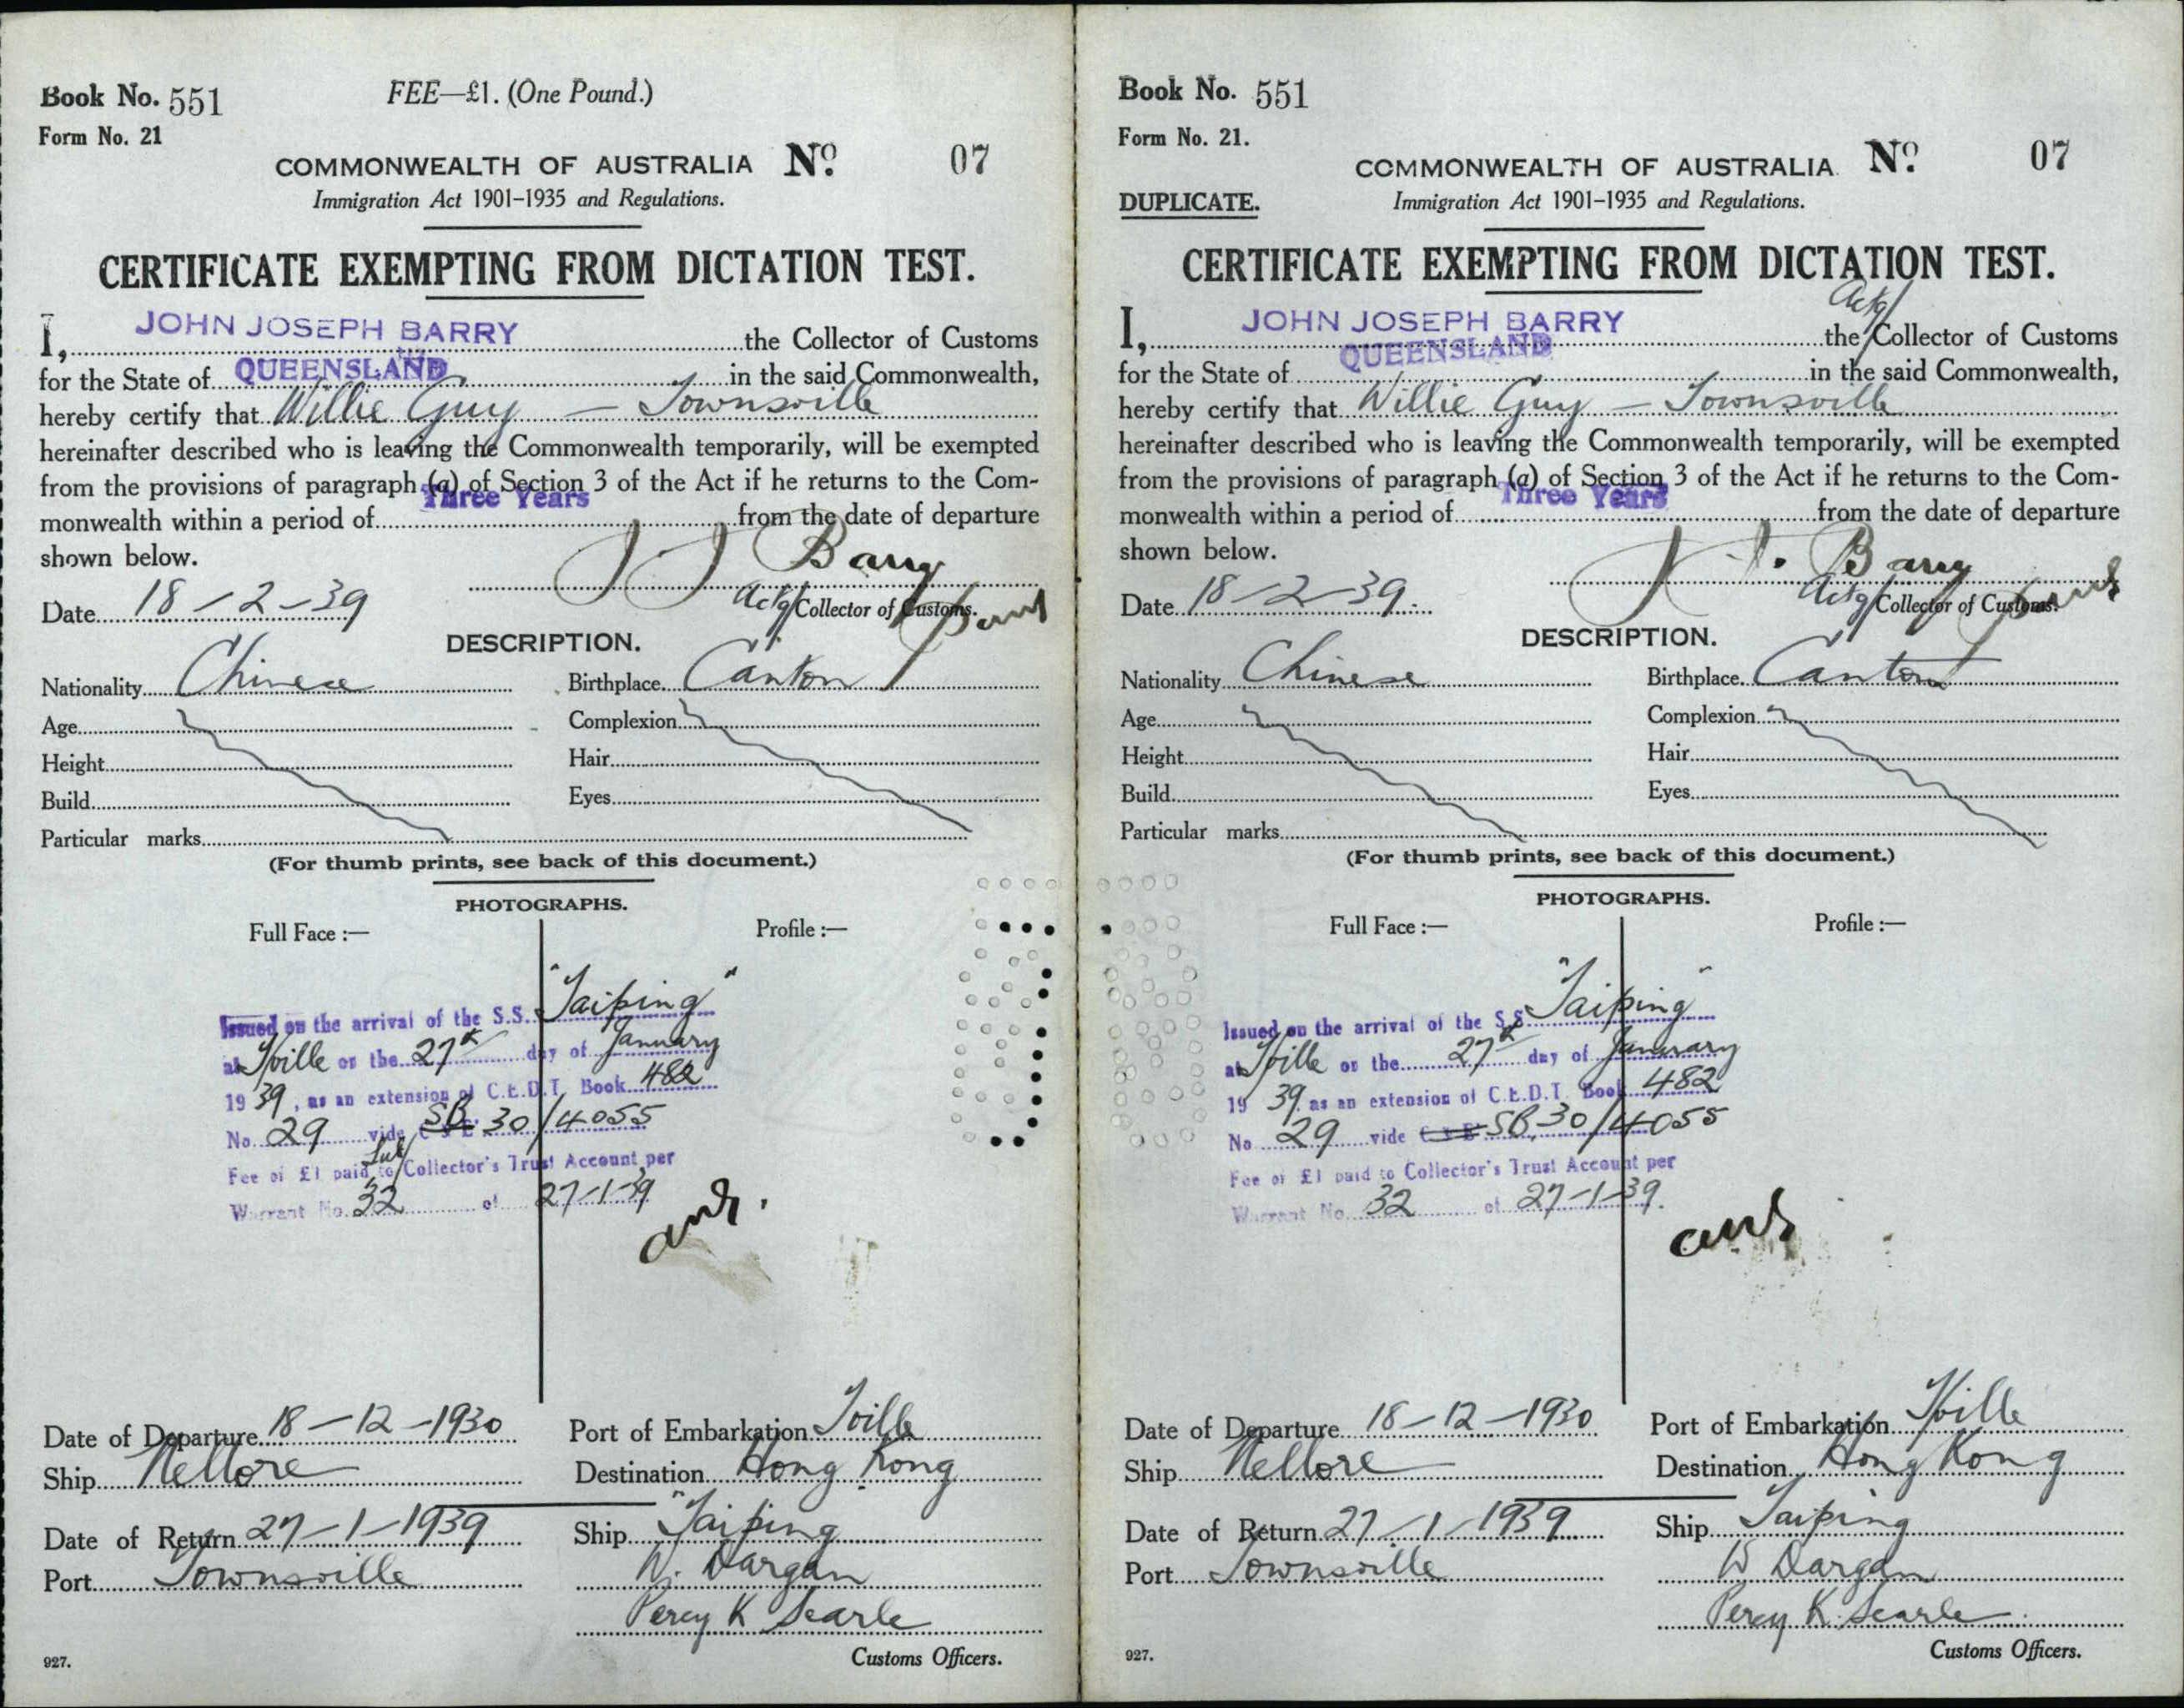 Book No. 551
FEE—£1. (One Pound.)
Form No. 21
COMMONWEALTH OF AUSTRALIA No. 07
Immigration Act 1901-1935 and Regulations.
CERTIFICATE EXEMPTING FROM DICTATION TEST.
I, JOHN JOSEPH BARRY the Collector of Customs
for the State of QUEENSLAND in the said Commonwealth,
hereby certify that Willie Guy — Townsville
hereinafter described who is leaving the Commonwealth temporarily, will be exempted
from the provisions of paragraph (a) of Section 3 of the Act if he returns to the Com-
monwealth within a period of Three Years from the date of departure
shown below.
J J Barry
Date 18-2-39 Actg Collector of Customs.
DESCRIPTION.
Nationality Chinese Birthplace Canton
Age Complexion
Height Hair
Build Eyes
Particular marks
(For thumb prints, see back of this document.)
PHOTOGRAPHS.
Full Face :— Profile :—
Issued on the arrival of the S.S. "Taiping"
at Tville on the 27th day of January
1939, as an extension of C.E.D.T. Book 482
No. 29 vide SB. 30/4055
Fee of £1 paid to Sub/Collector's Trust Account per
Warrant No. 32 of 27-1-39
Date of Departure 18-12-1930 Port of Embarkation Tville
Ship Nellore Destination Hong Kong
Date of Return 27-1-1939 Ship "Taiping
Port Townsville W. Dargan
Percy K Searle
927. Customs Officers.
Book No. 551
Form No. 21.
COMMONWEALTH OF AUSTRALIA No. 07
DUPLICATE.
Immigration Act 1901-1935 and Regulations.
CERTIFICATE EXEMPTING FROM DICTATION TEST.
I, JOHN JOSEPH BARRY the Actg/Collector of Customs
for the State of QUEENSLAND in the said Commonwealth,
hereby certify that Willie Guy — Townsville
hereinafter described who is leaving the Commonwealth temporarily, will be exempted
from the provisions of paragraph (a) of Section 3 of the Act if he returns to the Com-
monwealth within a period of Three Years from the date of departure
shown below.
J. J. Barry
Date 18-2-39. Actg Collector of Customs.
DESCRIPTION.
Nationality Chinese Birthplace Canton
Age Complexion
Height Hair
Build Eyes
Particular marks
(For thumb prints, see back of this document.)
PHOTOGRAPHS.
Full Face :— Profile :—
Issued on the arrival of the S.S. "Taiping"
at Tville on the 27th day of January
1939. as an extension of C.E.D.T. Book 482
No 29 vide SB. 30/4055
Fee of £1 paid to Collector's Trust Account per
Warrant No. 32 of 27-1-39.
Date of Departure 18-12-1930 Port of Embarkation Tville
Ship Nellore Destination Hong Kong
Date of Return 27-1-1939 Ship Taiping
Port Townsville W Dargan
Percy K. Searle
927. Customs Officers.